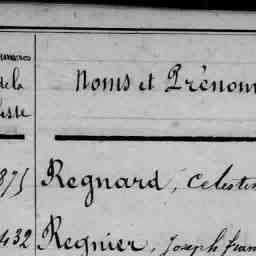 de la Noms et Prénom
875 Regnard, Celestin
432 Regnier, Joseph Fran